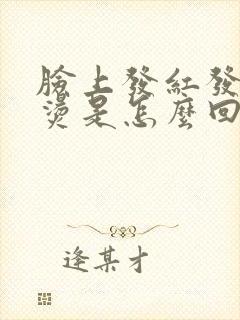 臉上發紅發
燙是怎麼回
逢某才